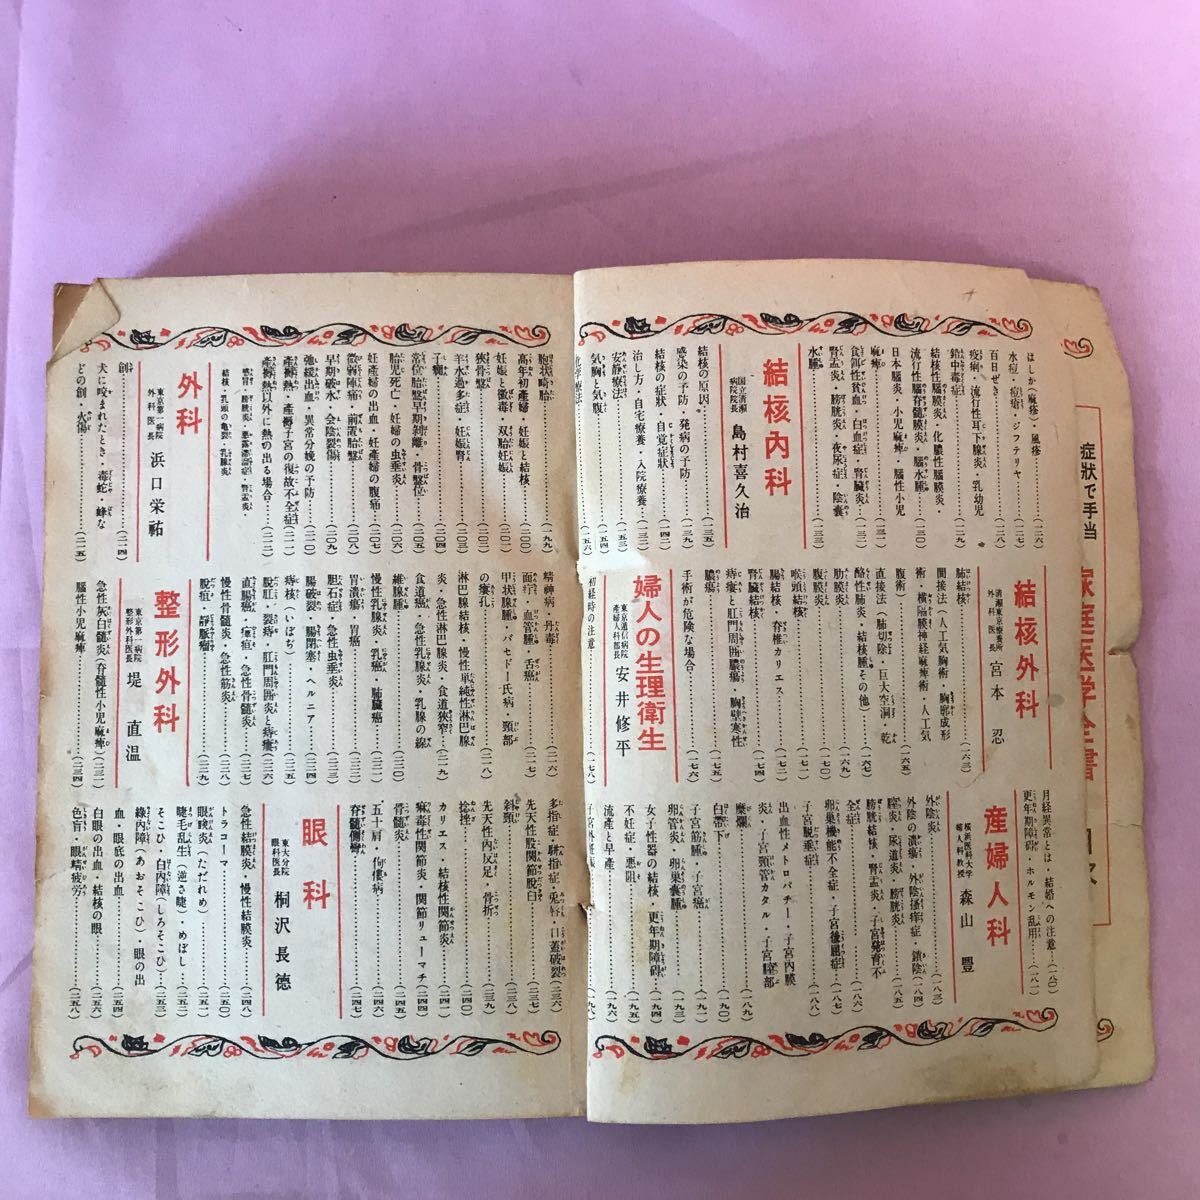 症狀で手当
家庭医学全書
はしか(麻疹)・風疹………(一二六)
水痘・痘瘡・ジフテリヤ
百日ぜき………
疫痢・流行性耳下腺炎・乳幼児
鉛中毒症………(一二九)
結核性脳膜炎・化膿性脳膜炎・
流行性脳脊髄膜炎・脳水腫……(一三〇)
日本脳炎・小児麻痺・脳性小児
麻痺………(一三一)
食餌性貧血・白血症・腎臓炎……(一三二)
腎盂炎・膀胱炎・夜尿症・陰嚢
水腫………(一三三)
結核內科
国立清瀬病院院長 島村喜久治
結核の原因………(一三五)
感染の予防・発病の予防………(一三九)
結核の症状・自覚症状………(一四二)
治し方・自宅療養・入院療養…(一三二)
安静療法………(一五三)
気胸と気腹………(一五四)
化学療法………(一五六)
結核外科
清瀬東京療養所外科医長 宮本 忍
肺結核………(一六三)
間接法(人工気胸術・胸郭成形
術・横隔膜神経麻痺術・人工気
腹術)………
直接法(肺切除・巨大空洞・乾
酪性肺炎・結核腫その他)
肋膜炎………(一七〇)
腹膜炎………
喉頭結核………
腸結核・脊椎カリエス………
腎結核………
痔瘻と肛門周囲膿瘍・胸壁寒性
膿瘍………(一七五)
手術が危険な場合………(一七六)
婦人の生理衛生
東京逓信病院産婦科部長 安井修平
初経時の注意………(一七八)
月経異常とは・結婚への注意…(一八〇)
更年期障碍・ホルモン乱用……(一八一)
産婦人科
横浜医科大学婦人科教授 森山 豊
外陰炎………(一八三)
外陰の潰瘍・外陰掻痒症・鎖陰(一八四)
腟炎・尿道炎・膀胱炎………(一八五)
膀胱結核・腎盂炎・子宮発育不
全症………(一八六)
卵巣機能不全症・子宮後屈症…
子宮脱垂………(一八八)
出血性メトロパチー・子宮内膜
炎・子宮頸管カタル・子宮腟部
糜爛………(一八九)
白帯下………(一九〇)
子宮筋腫・子宮癌………(一九一)
卵管炎・卵巣囊腫………(一九三)
女子性器の結核・更年期障碍…(一九四)
不妊症・悪阻………(一九五)
流產と早産………(一九六)
子宮外妊娠………(一九八)
胞状畸胎………(一九九)
高年初產婦・妊娠と結核………(二〇〇)
妊娠と黴毒・双胎妊娠………
狹骨盤………
羊水過多症・妊娠腎………(二〇三)
常位胎盤早期剝離・骨盤位……
胎児死亡・妊婦の虫垂炎………(二〇六)
妊產婦の出血・妊產婦の腹痛…(二〇七)
微弱陣痛・前置胎盤………(二〇八)
早期破水・会陰裂傷………(二〇九)
弛緩出血・異常分娩の予防……(二一〇)
産褥熱・産褥子宮の復故不全症(二一一)
產褥熱以外に熱の出る場合……(二一二)
感冒・膀胱炎・悪露滞溜症・腎盂炎・
結核・乳頭の亀裂・乳腺炎
外科
東京第一病院外科医長 浜口栄祐
創………(二一四)
犬に咬まれたとき・毒蛇・蜂な
どの創・火傷………(二一五)
精神病・丹毒………(二一六)
面疔・血管腫・舌癌………(二一七)
甲状腺腫・バセドー氏病・頸部
の瘻孔………(二一八)
淋巴腺結核・慢性単純性淋巴腺
炎・急性淋巴腺炎・食道狹窄…(二一九)
食道癌・急性乳腺炎・乳腺の線
維腫………(二二〇)
慢性乳腺炎・乳癌・肺臓癌……
胃潰瘍・胃癌………
胆石症・急性虫垂炎………
腸破裂・腸閉塞・ヘルニア……(二二四)
痔核(いぼぢ)………(二二五)
脱肛・裂痔・肛門周囲炎と痔瘻(二二六)
直腸癌・瘭疽・急性骨髄炎……(二二七)
慢性骨髄炎・急性筋炎………(二二八)
脱疽・靜脈瘤………(二二九)
整形外科
東京第一病院整形外科医長 堤 直温
急性灰白髄炎(脊髄性小児麻痺)(二三一)
脳性小児麻痺………(二三四)
多指症・駢指症・兎唇・口蓋破裂(二三六)
先天性股関節脱臼………(二三七)
斜頸………
先天性內反足・骨折………(二三九)
捻挫………(二四〇)
カリエス・結核性関節炎………
痳毒性関節炎・関節リューマチ(二四四)
骨髄炎………(二四五)
五十肩・佝僂病………(二四六)
脊髄側彎………(二四七)
眼科
東大分院眼科医長 桐沢長徳
急性結膜炎・慢性結膜炎………(二四九)
トラコーマ………(二五〇)
眼瞼炎(ただれめ)………(二五一)
睫毛乱生(逆さ睫)・めぼし……(二五二)
そこひ・白內障(しろそこひ)…(二五三)
緑內障(あおそこひ)・眼の出
血・眼底の出血………(二五四)
白眼の出血・結核の眼………(二五六)
色盲・眼睛疲労………(二五八)